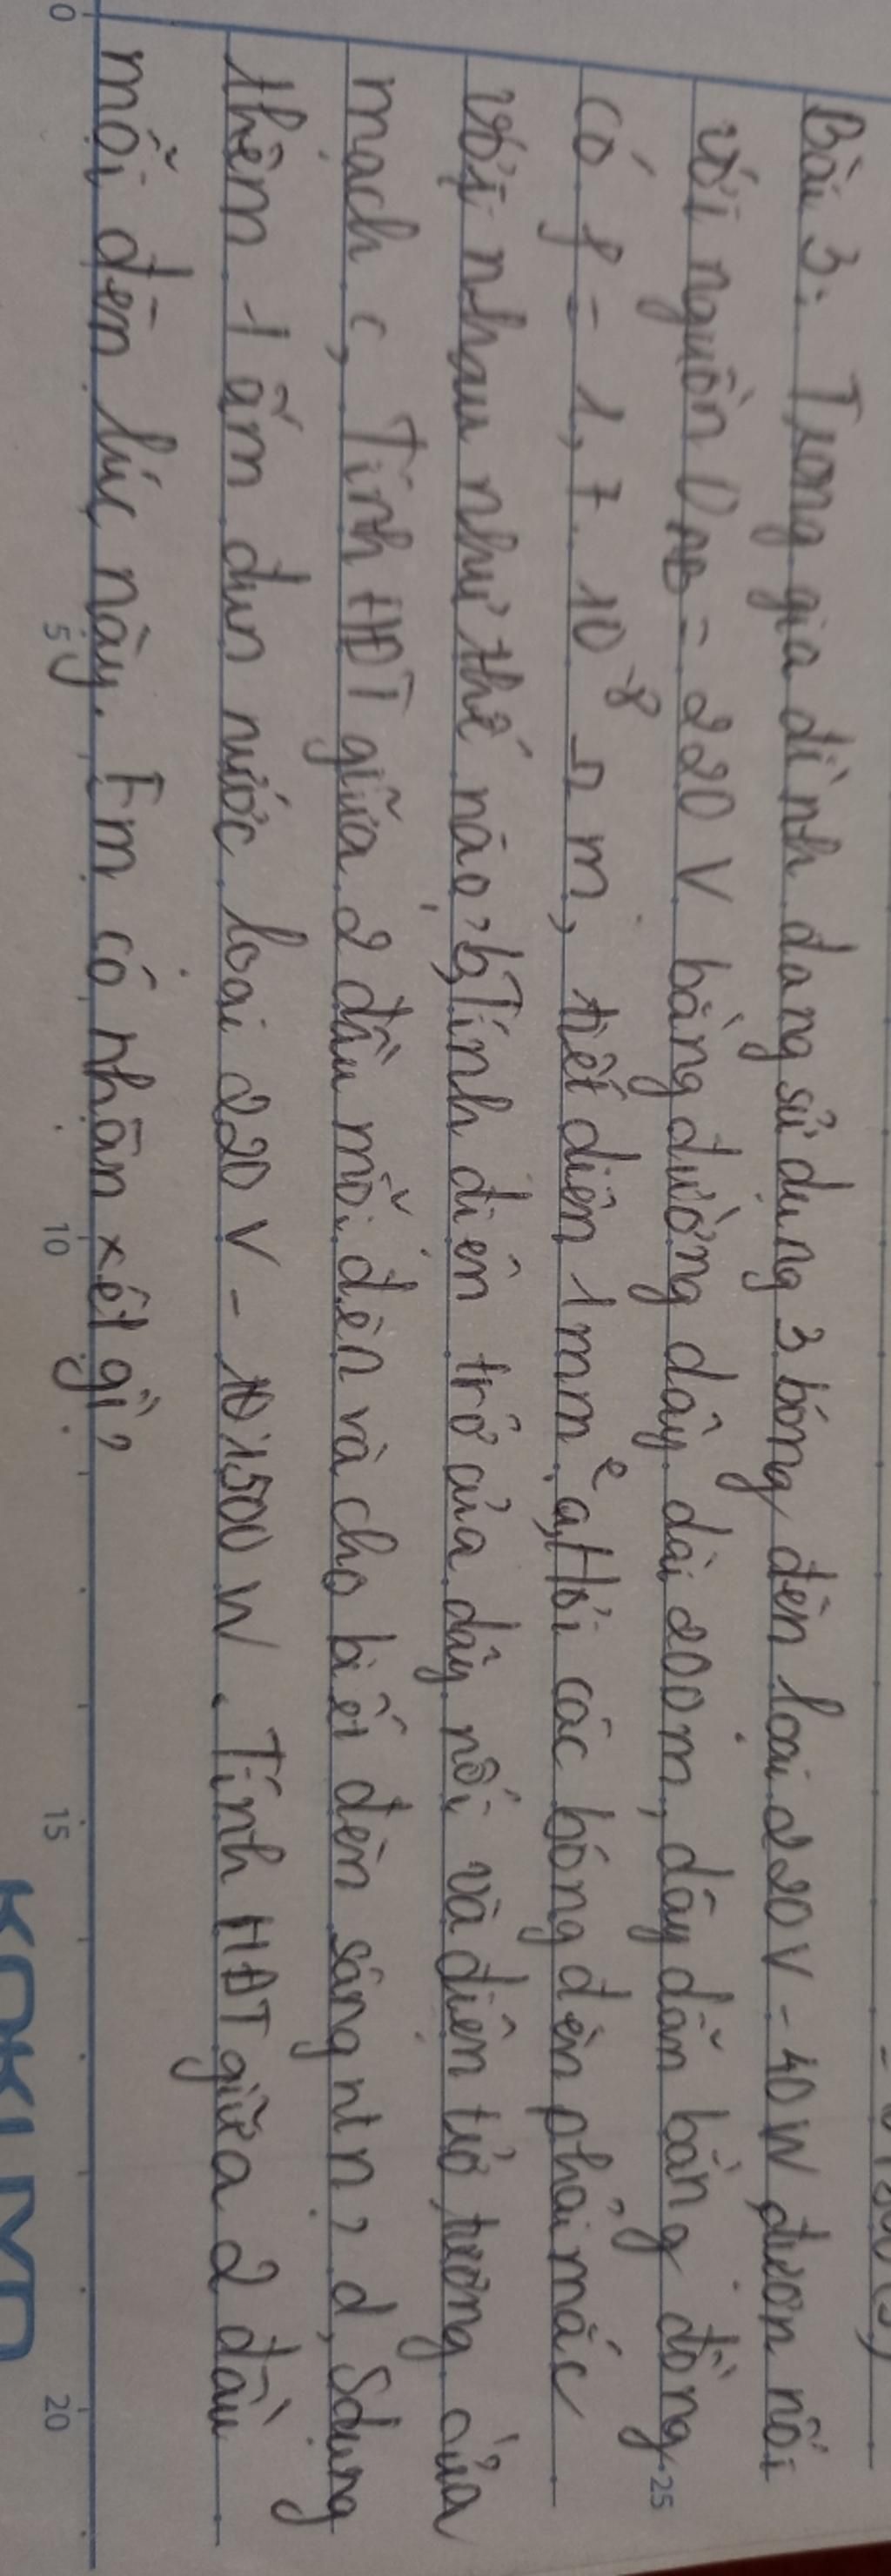 Bài 3: Trong gia đình đang sử dụng 3 bóng đèn loại 220V - 40W, được nối
với nguồn UAB = 220 V bằng đường dây dài 200m, dây dẫn bằng đồng
có ρ = 1,7.10⁻⁸ Ωm, tiết diện 1mm² a, Hỏi các bóng đèn phải mắc
với nhau như thế nào? b, Tính điện trở của dây nối và điện trở tương của
mạch c, Tính HĐT giữa 2 đầu mỗi đèn và cho biết đèn sáng ntn? d, Sdụng
thêm 1 ấm đun nước loại 220 V - 1500 W. Tính HĐT giữa 2 đầu
mỗi đèn lúc này. Em có nhận xét gì?
0 5 10 15 20
25